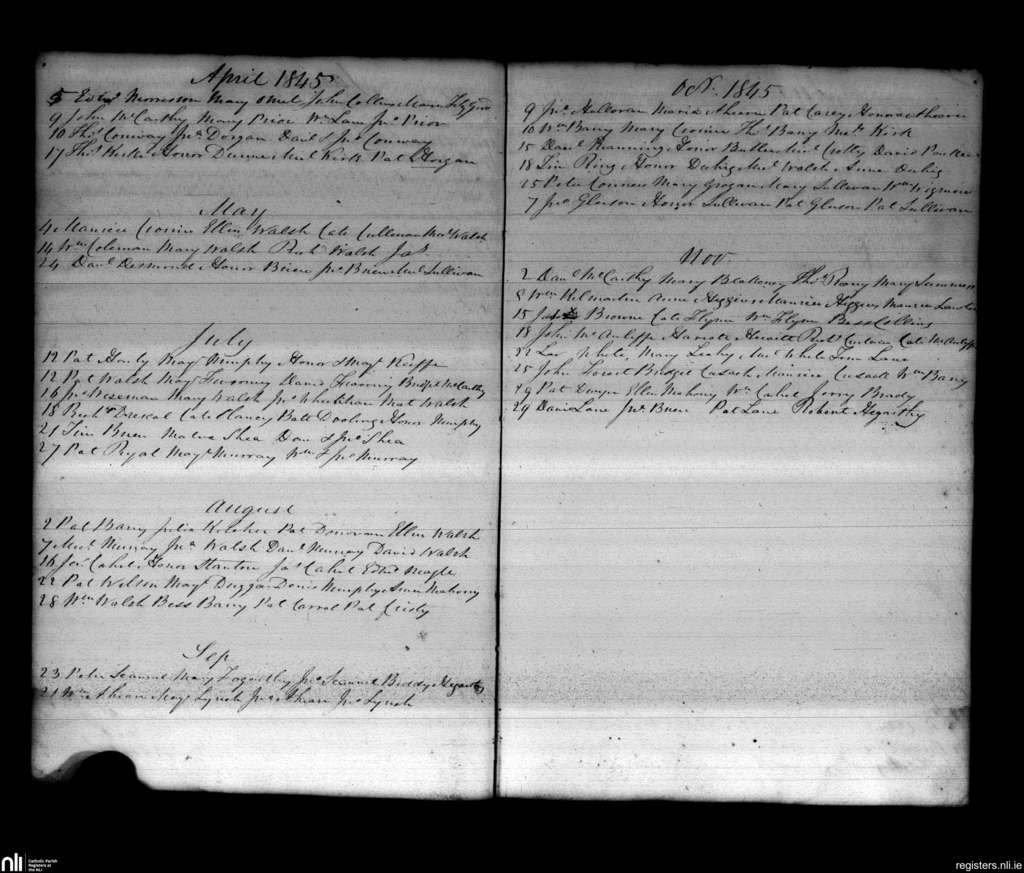 April 1845
5 Edwd Morrisson Mary Ahirl John Collins
9 John McCarthy Mary Prior Wm Lane Jno Prior
10 Thos Conway Jno Dorgan Danl & Jno Conway
17 Thos Kirk Honor Dunne Michl Kirk Pat Horgan
May
4 Maurice Cronin Ellen Walsh Cate Culleman Mau Walsh
14 Wm Coleman Mary Walsh Richd Walsh Jas
24 Danl Desmond Honor Brien Jno Brien Michl Sullivan
July
12 Pat Hurly Mary Murphy Honor & Mary Keeffe
12 Pat Walsh Mary Twomey David Twomey Bridget McCarthy
16 Jno Wiseman Mary Walsh Jno Mat Walsh
18 Richd Driscol Cate Clancy Batt Dooling Honor Murphy
21 Tim Brien Shea Dan & Jno Shea
27 Pat Ryal Mary Murray Wm & Jno Murray
August
2 Pat Barry Julia Keleher Pat Donovan Ellen Walsh
7 Michl Murray Jna Walsh Danl Murray David Walsh
16 Jon Cahil Honor Stanton Jas Cahil Edwd Neagle
22 Pat Wilson Mary Duggan Denis Murphy Mahony
28 Wm Walsh Bess Barry Pat Carrol Pat
Sep
23 Peter Scannel Mary Fogarthy Jno Scannel Biddy Hegarthy
Wm Ahearn Mary Lynch Jno Ahearn Jno Lynch
Oct. 1845
9 Jno Halloran Maria Ahearn Pat Casey Honora Ahearn
10 Wm Barry Mary Cronin Thos Barry Michl Kirk
15 Danl Manning Honor Butler Michl David
18 Tim Ring Honor Duhig Michl Walsh Anne Duhig
25 Peter Connors Mary Grogan Mary Sullivan Wm
7 Jno Gleeson Honor Sullivan Pat Gleeson Pat Sullivan
Nov
2 Danl McCarthy Mary Thos Barry Mary
8 Wm Kilmartin Anne Higgins Maurice Higgins Maurice
15 Jas Browne Cate Flynn Wm Flynn Bess Collins
18 John McAuliffe Harriote Richd Cate McAuliffe
22 Lar White Mary Leahy Michl White Tim Lane
25 John Bridgit Cusack Maurice Cusack Wm Barry
29 Pat Dwyer Ellen Mahony Wm Cahil Jerry Brady
29 David Lane Jno Brien Pat Lane Robert Hegarthy
nli
Catholic Parish
Registers at
the NLI
registers.nli.ie